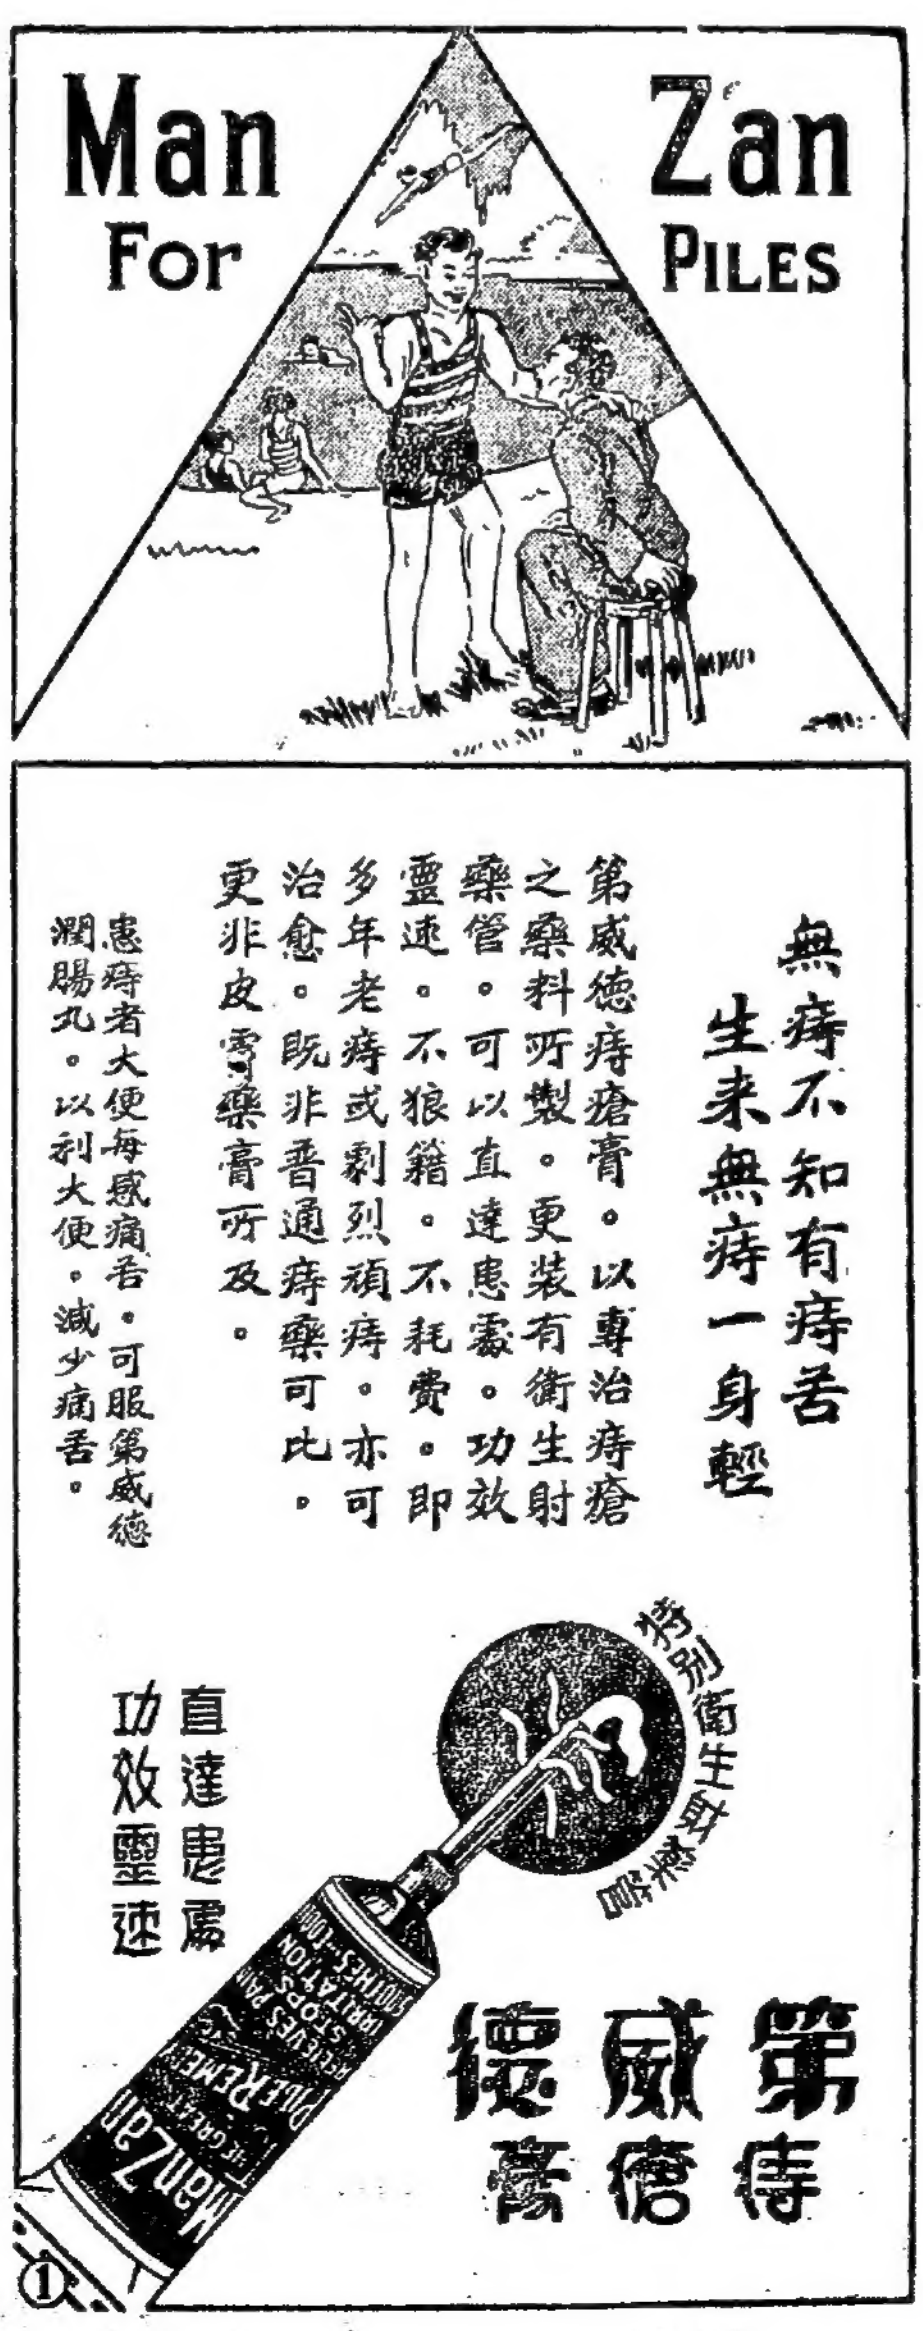 Man Zan
For Piles
無痔不知有痔苦
生来無痔一身輕
第威德痔瘡膏。以專治痔瘡
之藥料所製。更装有衛生射
藥管。可以直達患處。功效
靈速。不狼籍。不耗費。即
多年老痔或劇烈頑痔。亦可
治愈。既非普通痔藥可比。
更非皮膚藥膏所及。
患痔者大便每感痛苦。可服第威德
潤腸丸。以利大便。減少痛苦。
特別衛生射藥管
直達患處
功效靈速
ManZan
THE GREAT
PILE REMEDY
RELIEVES PAIN
STOPS
IRRITATION
第威德
痔瘡膏
1